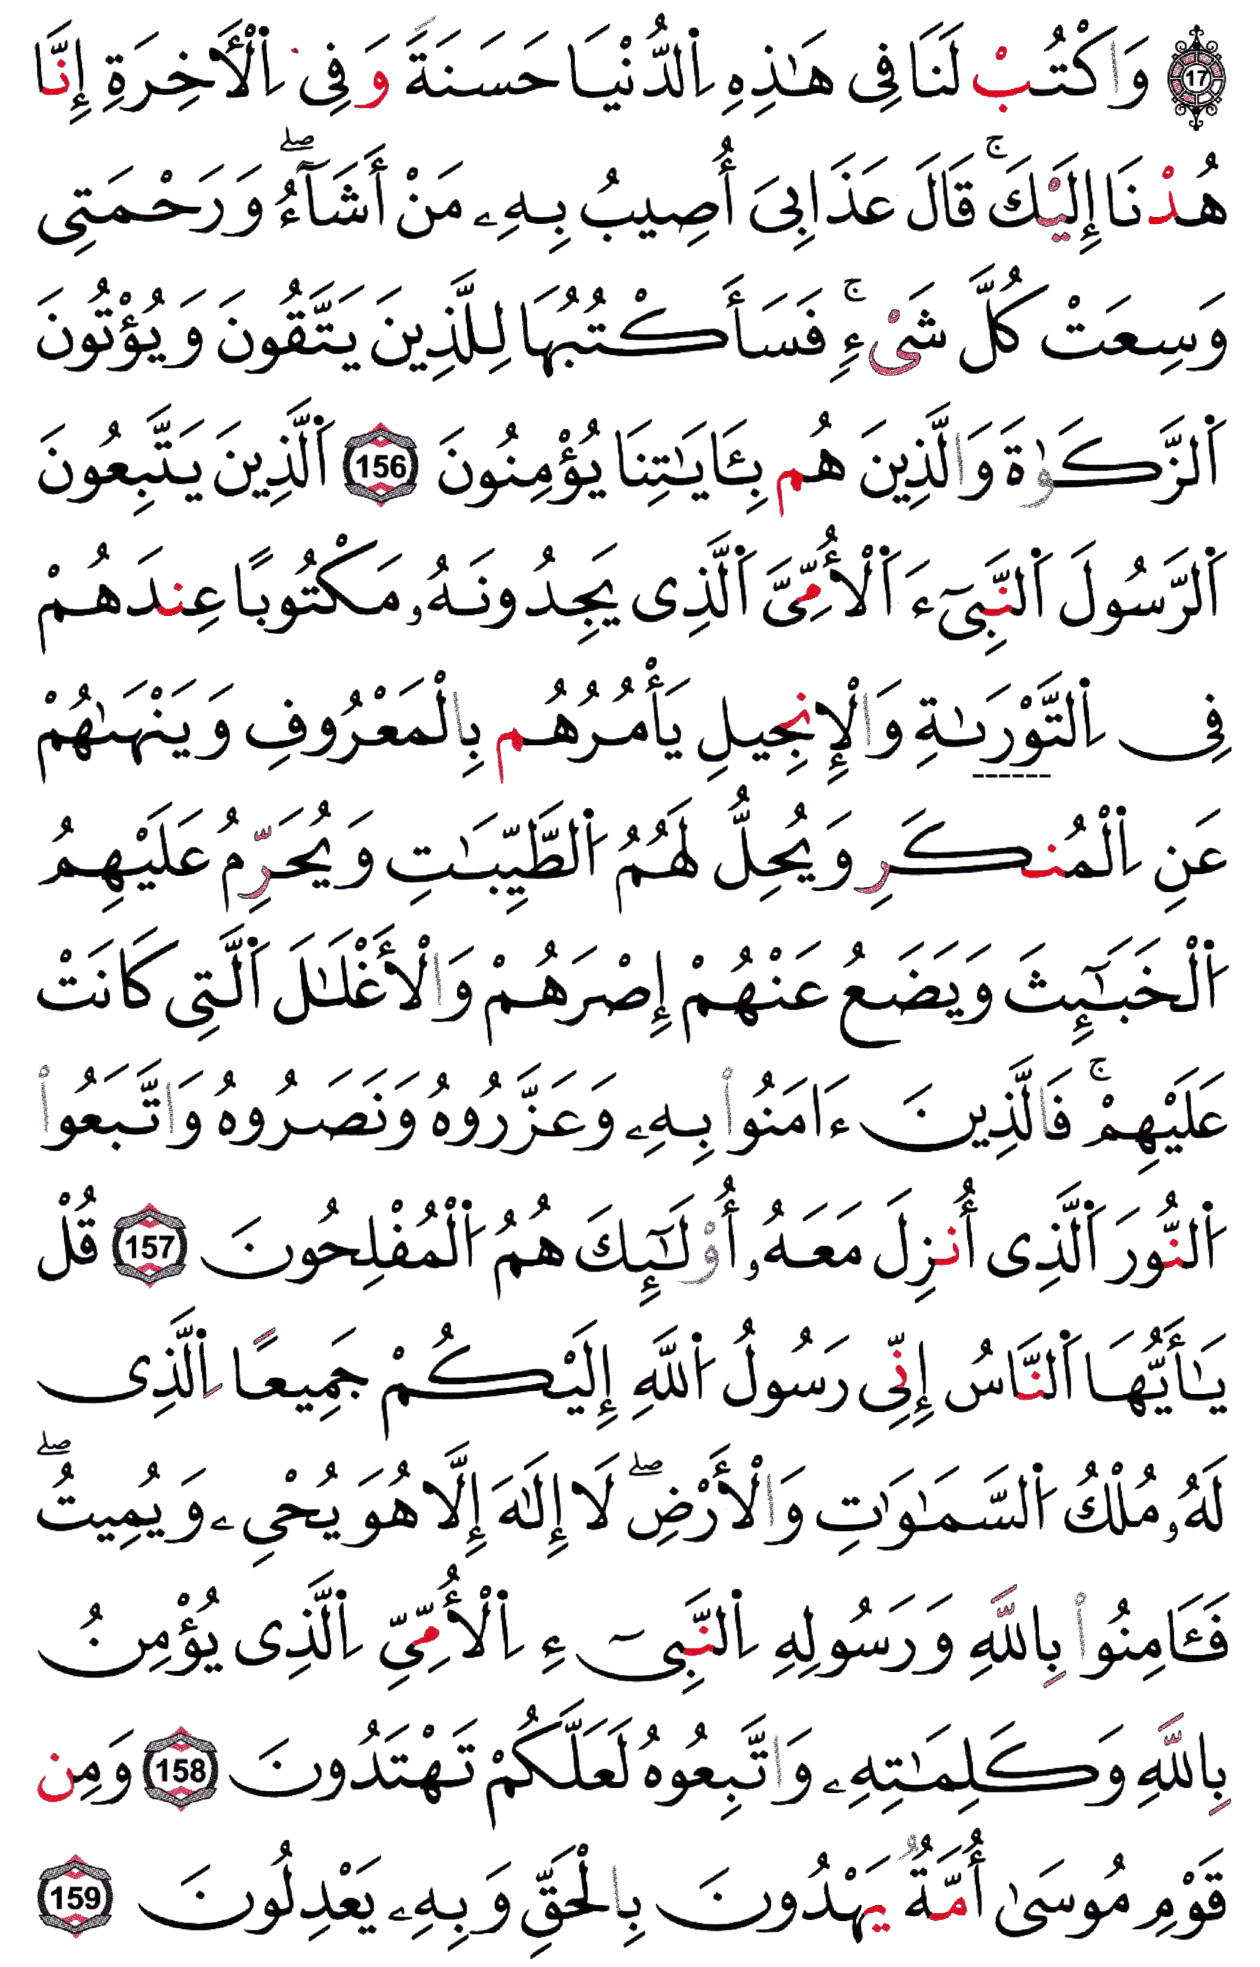 17 وَاكْتُبْ لَنَا فِى هَٰذِهِ اِ۬لدُّنْيَا حَسَنَةً وَفِى اِ۬لْأَخِرَةِ إِنَّا
هُدْنَا إِلَيْكَ ۚ قَالَ عَذَابِىَ أُصِيبُ بِهِۦ مَنْ أَشَآءُ ۖ وَرَحْمَتِى
وَسِعَتْ كُلَّ شَىْءٍ ۚ فَسَأَكْتُبُهَا لِلَّذِينَ يَتَّقُونَ وَيُؤْتُونَ
اَ۬لزَّكَوٰةَ وَالَّذِينَ هُم بِـَٔايَٰتِنَا يُؤْمِنُونَ 156 اَ۬لَّذِينَ يَتَّبِعُونَ
اَ۬لرَّسُولَ اَ۬لنَّبِىٓءَ اَ۬لْأُمِّىَّ اَ۬لَّذِى يَجِدُونَهُۥ مَكْتُوبًا عِندَهُمْ
فِى اِ۬لتَّوْرَىٰةِ وَالْإِنجِيلِ يَأْمُرُهُم بِالْمَعْرُوفِ وَيَنْهَىٰهُمْ
عَنِ اِ۬لْمُنكَرِ وَيُحِلُّ لَهُمُ اُ۬لطَّيِّبَٰتِ وَيُحَرِّمُ عَلَيْهِمُ
اُ۬لْخَبَٰٓئِثَ وَيَضَعُ عَنْهُمْ إِصْرَهُمْ وَالْأَغْلَٰلَ اَ۬لَّتِى كَانَتْ
عَلَيْهِمْ ۚ فَالَّذِينَ ءَامَنُوا۟ بِهِۦ وَعَزَّرُوهُ وَنَصَرُوهُ وَاتَّبَعُوا۟
اُ۬لنُّورَ اَ۬لَّذِى أُنزِلَ مَعَهُۥ أُو۟لَٰٓئِكَ هُمُ اُ۬لْمُفْلِحُونَ 157 قُلْ
يَٰأَيُّهَا اَ۬لنَّاسُ إِنِّى رَسُولُ اُ۬للَّهِ إِلَيْكُمْ جَمِيعًا اِ۬لَّذِى
لَهُۥ مُلْكُ اُ۬لسَّمَٰوَٰتِ وَالْأَرْضِ ۖ لَا إِلَٰهَ إِلَّا هُوَ يُحْىِۦ وَيُمِيتُ ۖ
فَـَٔامِنُوا۟ بِاللَّهِ وَرَسُولِهِ اِ۬لنَّبِىٓءِ اِ۬لْأُمِّىِّ اِ۬لَّذِى يُؤْمِنُ
بِاللَّهِ وَكَلِمَٰتِهِۦ وَاتَّبِعُوهُ لَعَلَّكُمْ تَهْتَدُونَ 158 وَمِن
قَوْمِ مُوسَىٰ أُمَّةٌ يَهْدُونَ بِالْحَقِّ وَبِهِۦ يَعْدِلُونَ 159